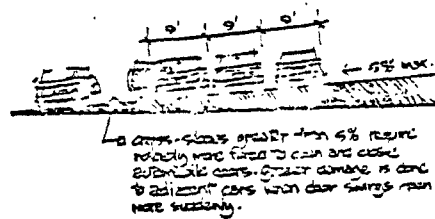 9' 9' 9'
5% max.
cross-slopes greater than 5% require
more force to open and close
automobile doors. Greater damage is done
to adjacent cars when door swings open
more suddenly.